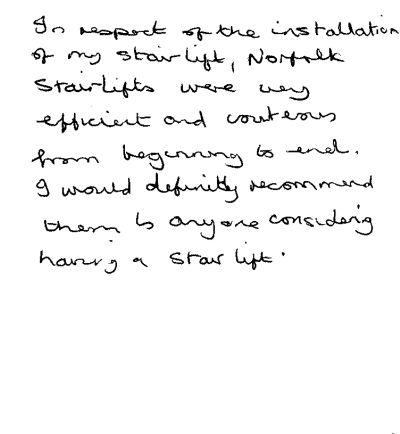 In respect of the installation
of my stair lift, Norfolk
Stairlifts were very
efficient and courteous
from beginning to end.
I would definitely recommend
them to anyone considering
having a stair lift.